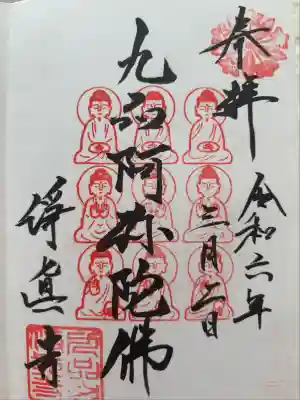 奉拝
令和六年
三月二日
九品阿弥陀佛
淨眞寺